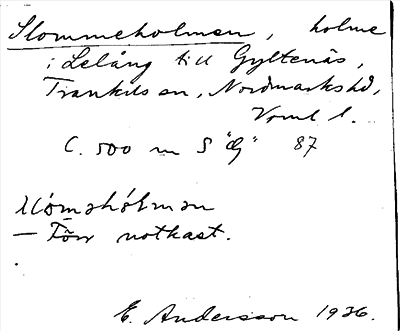 Slommeholmen, holme
i Lelång till Gyltenäs,
Trankils sn, Nordmarks hd,
Vrml l.
C. 500 m S "G" 87
— Förr notkast.
E. Andersson 1936.